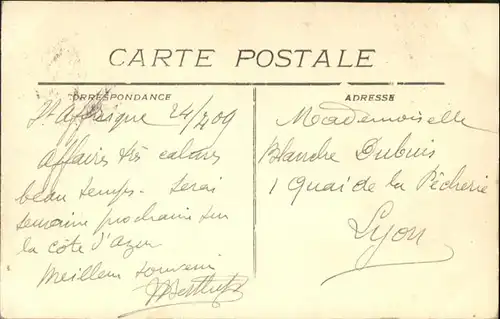 CARTE POSTALE
CORRESPONDANCE
St Affrique 24/2 09
Affaires très calmes
beau temps. Serai
semaine prochaine sur
la côte d'Azur
Meilleur souvenir
ADRESSE
Mademoiselle
Blanche Dubuis
1 Quai de la Pêcherie
Lyon